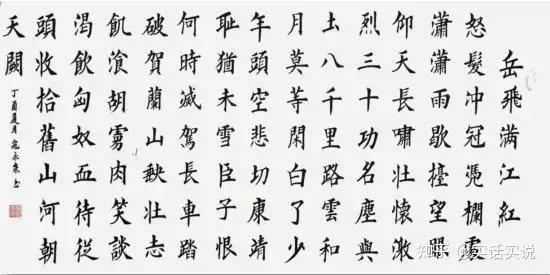 岳飛满江紅
怒髮冲冠凴欄處
瀟瀟雨歇擡望眼
仰天長嘯壯懷激
烈三十功名塵與
土八千里路雲和
月莫等閑白了少
年頭空悲切康靖
耻猶未雪臣子恨
何時滅駕長車踏
破賀蘭山缺壯志
飢湌胡虜肉笑談
渴飲匈奴血待從
頭收拾舊山河朝
天闕
丁酉夏月
知乎 @实话实说